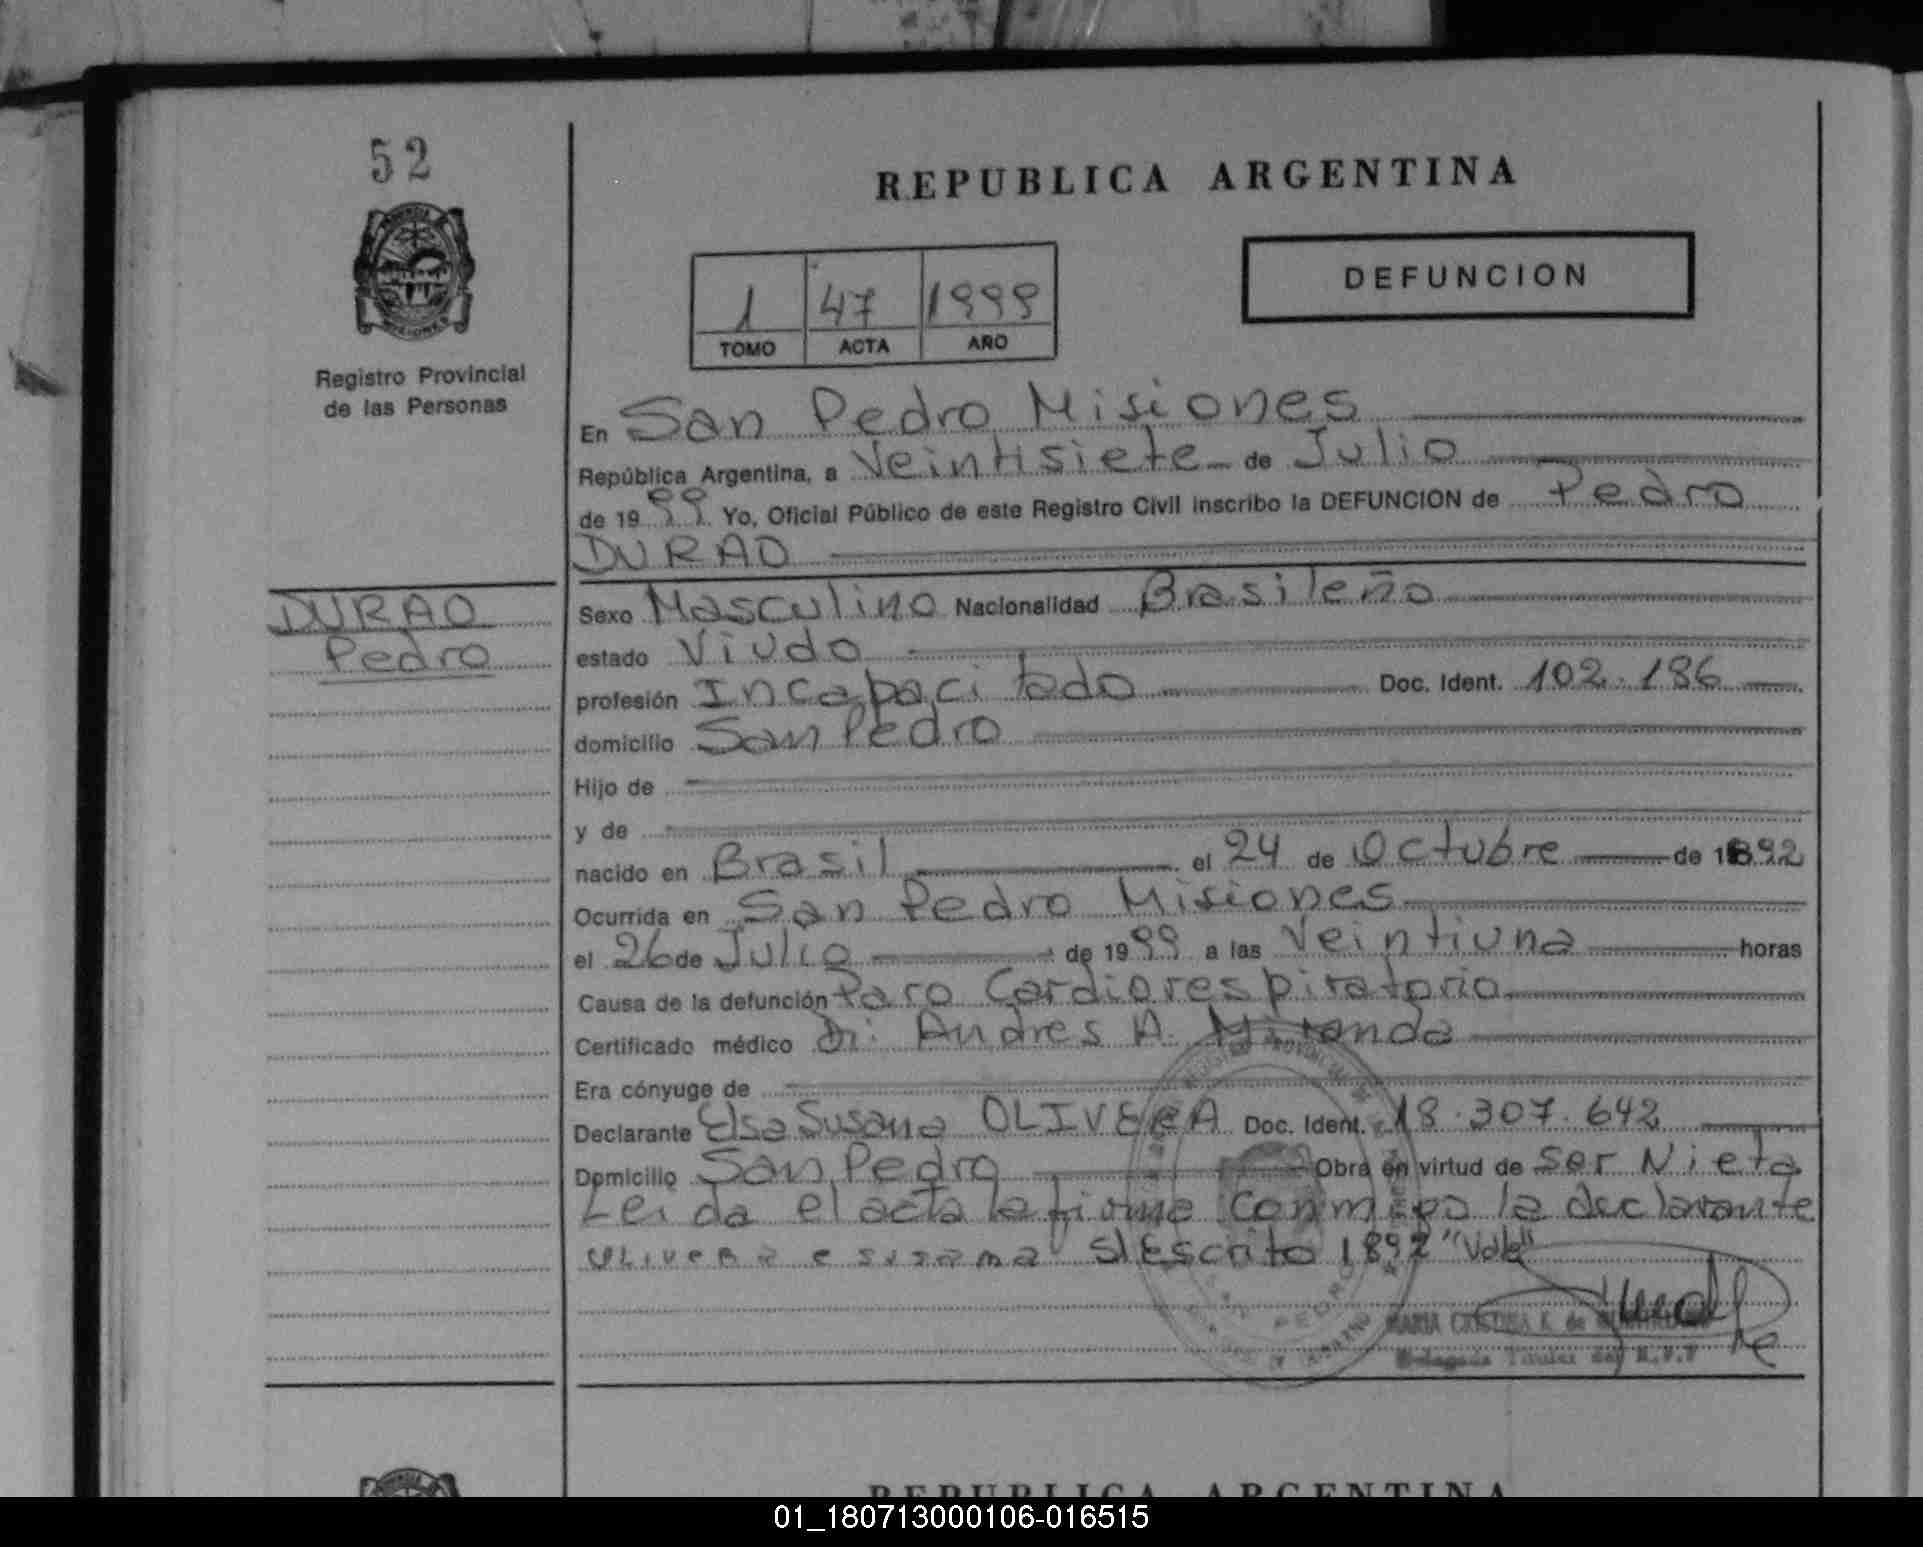 52
REPUBLICA ARGENTINA
1 47 1999
TOMO ACTA AÑO
DEFUNCION
Registro Provincial
de las Personas
En San Pedro Misiones
República Argentina, a Veintisiete de Julio
de 1999. Yo, Oficial Público de este Registro Civil inscribo la DEFUNCION de Pedro
DURAO
DURAO
Pedro
Sexo Masculino Nacionalidad Brasileño
estado Viudo
profesión Incapacitado Doc. Ident. 102.186
domicilio San Pedro
Hijo de
y de
nacido en Brasil el 24 de Octubre de 1892
Ocurrida en San Pedro Misiones
el 26 de Julio de 1999 a las Veintiuna horas
Causa de la defunción Paro Cardiorespiratorio
Certificado médico Dr. Andres A. Miranda
Era cónyuge de
Declarante Elsa Susana OLIVERA Doc. Ident. 18.307.642
Domicilio San Pedro Obra en virtud de Ser Nieta
Leida el acta la firma conmigo la declarante
OLIVERA e susana S/Escrito 1892 "Vale"
SAN PEDRO
MARIA CRISTINA K. de
Delegada Titular del R.P.P
REPUBLICA ARGENTINA
01_180713000106-016515